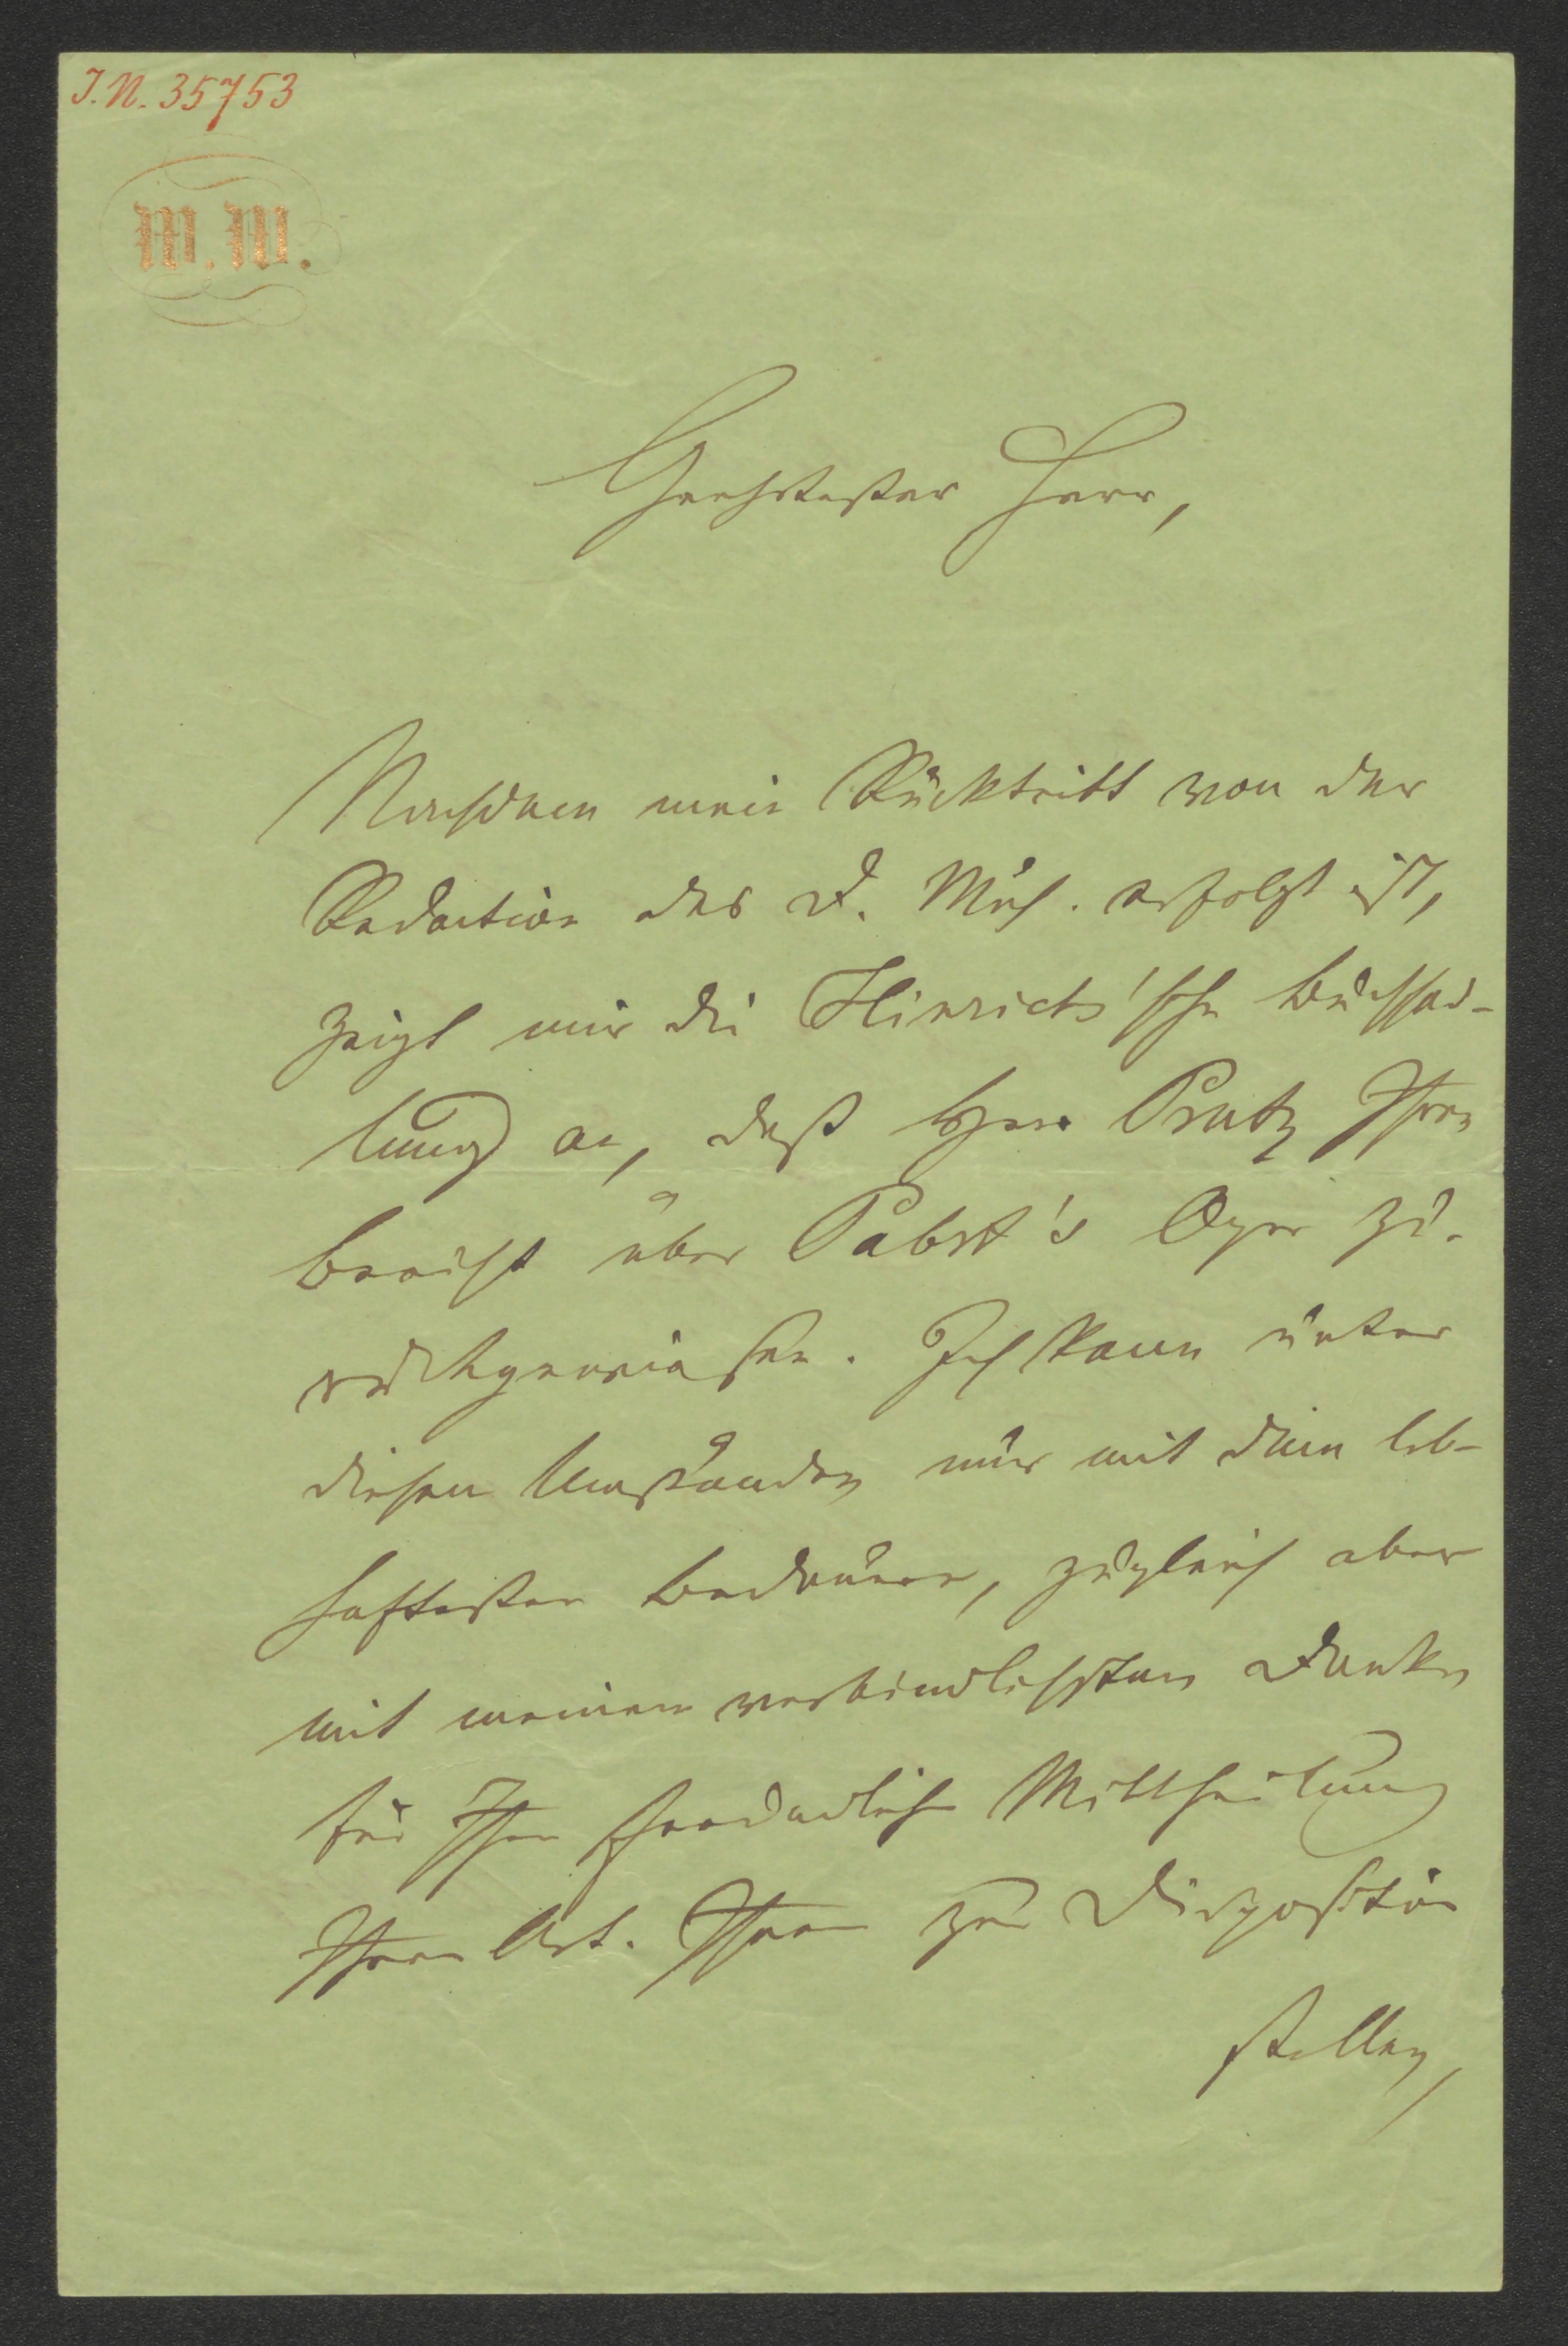 I.N. 35753
M.M.
Geehrtester Herr,
Nachdem mein Rücktritt von der
Redaction des D. Mus. erfolgt ist,
zeigt mir die Hinrichs'sche Buchhand-
lung an, daß Herr Prutz Ihren
Bericht über Pabst's Oper zu-
rückgewiesen. Ich kann unter
diesen Umständen nur mit dem leb-
haftesten Bedauern, zugleich aber
mit meinem verbindlichsten Danke
für Ihre freundliche Mittheilung
Ihren Art. Ihnen zur Disposition
stellen,